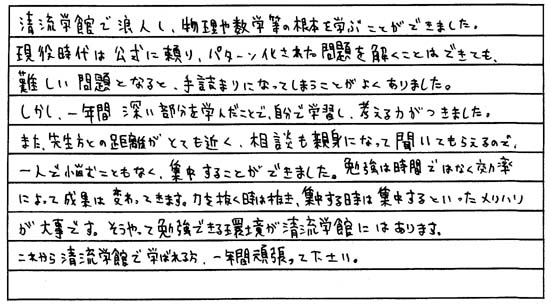 清流学館で浪人し、物理や数学等の根本を学ぶことができました。
現役時代は公式に頼り、パターン化された問題を解くことはできても、
難しい問題となると、手詰まりになってしまうことがよくありました。
しかし、一年間 深い部分を学んだことで、自分で学習し、考える力がつきました。
また、先生方との距離がとても近く、相談も親身になって聞いてもらえるので、
一人で悩むこともなく、集中することができました。勉強は時間ではなく効率
によって成果は変わってきます。力を抜く時は抜き、集中する時は集中するといったメリハリ
が大事です。そうやって勉強できる環境が清流学館にはあります。
これから清流学館で学ばれる方、一年間頑張って下さい。